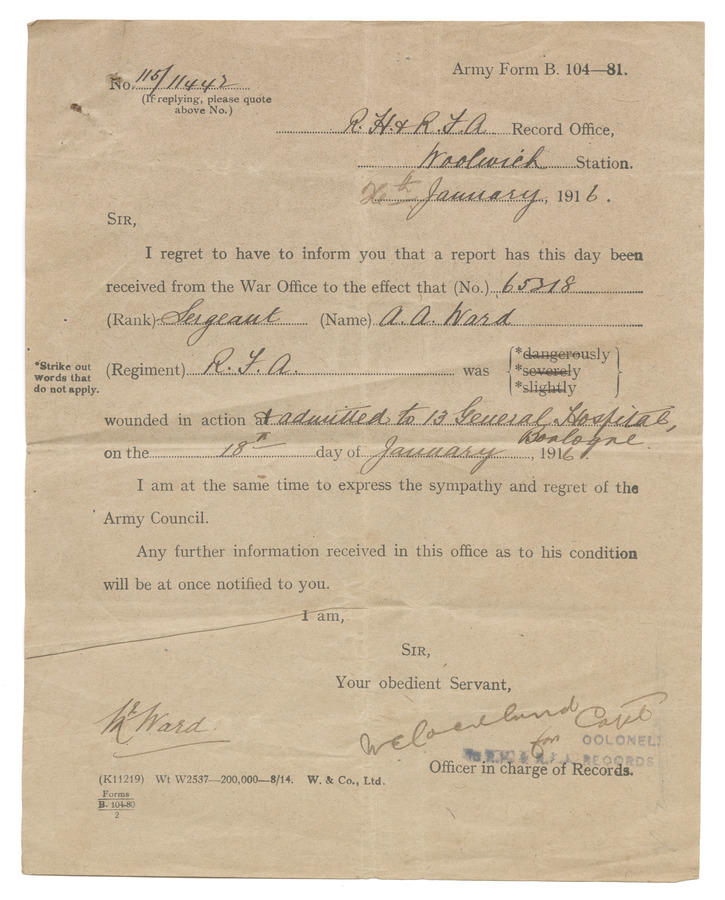 Army Form B. 104—81.
No. 115/11442
(If replying, please quote
above No.)
R. H. & R. F. A Record Office,
Woolwich Station.
January, 1916.
SIR,
I regret to have to inform you that a report has this day been
received from the War Office to the effect that (No.) 65318
(Rank) Sergeant (Name) A. A. Ward
(Regiment) R. F. A. was
*dangerously
*severely
*slightly
*Strike out
words that
do not apply.
wounded in action & admitted to 13 General Hospital,
Boulogne
on the 18th day of January, 1916
I am at the same time to express the sympathy and regret of the
Army Council.
Any further information received in this office as to his condition
will be at once notified to you.
I am,
SIR,
Your obedient Servant,
Mr Ward
Capt
for COLONEL
R.H. & R.F.A. RECORDS
Officer in charge of Records.
(K11219) Wt W2537—200,000—8/14. W. & Co., Ltd.
Forms
B. 104-80
2